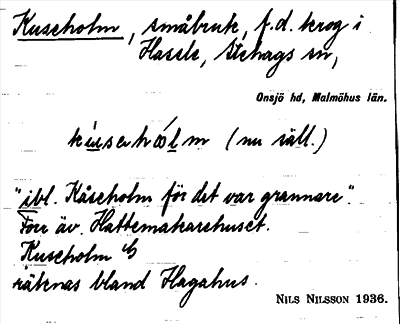 Kuseholm, småbruk, f.d. krog i
Hassle, Stehags sn,
Onsjö hd, Malmöhus län.
kùsenhólm (nu säll.)
"ibl. Kåseholm för det var grannare".
Förr äv. Hattemakarehuset.
Kuseholm
räknas bland Hagahus.
NILS NILSSON 1936.